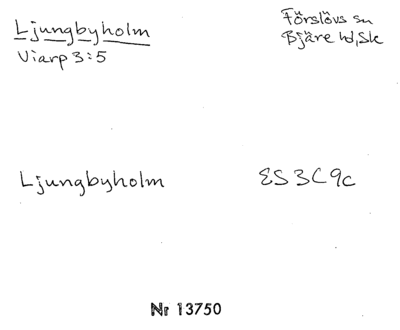 Ljungbyholm
Förslövs sn
Viarp 3:5
Bjäre hd, Sk
Ljungbyholm
ES 3C 9c
Nr 13750